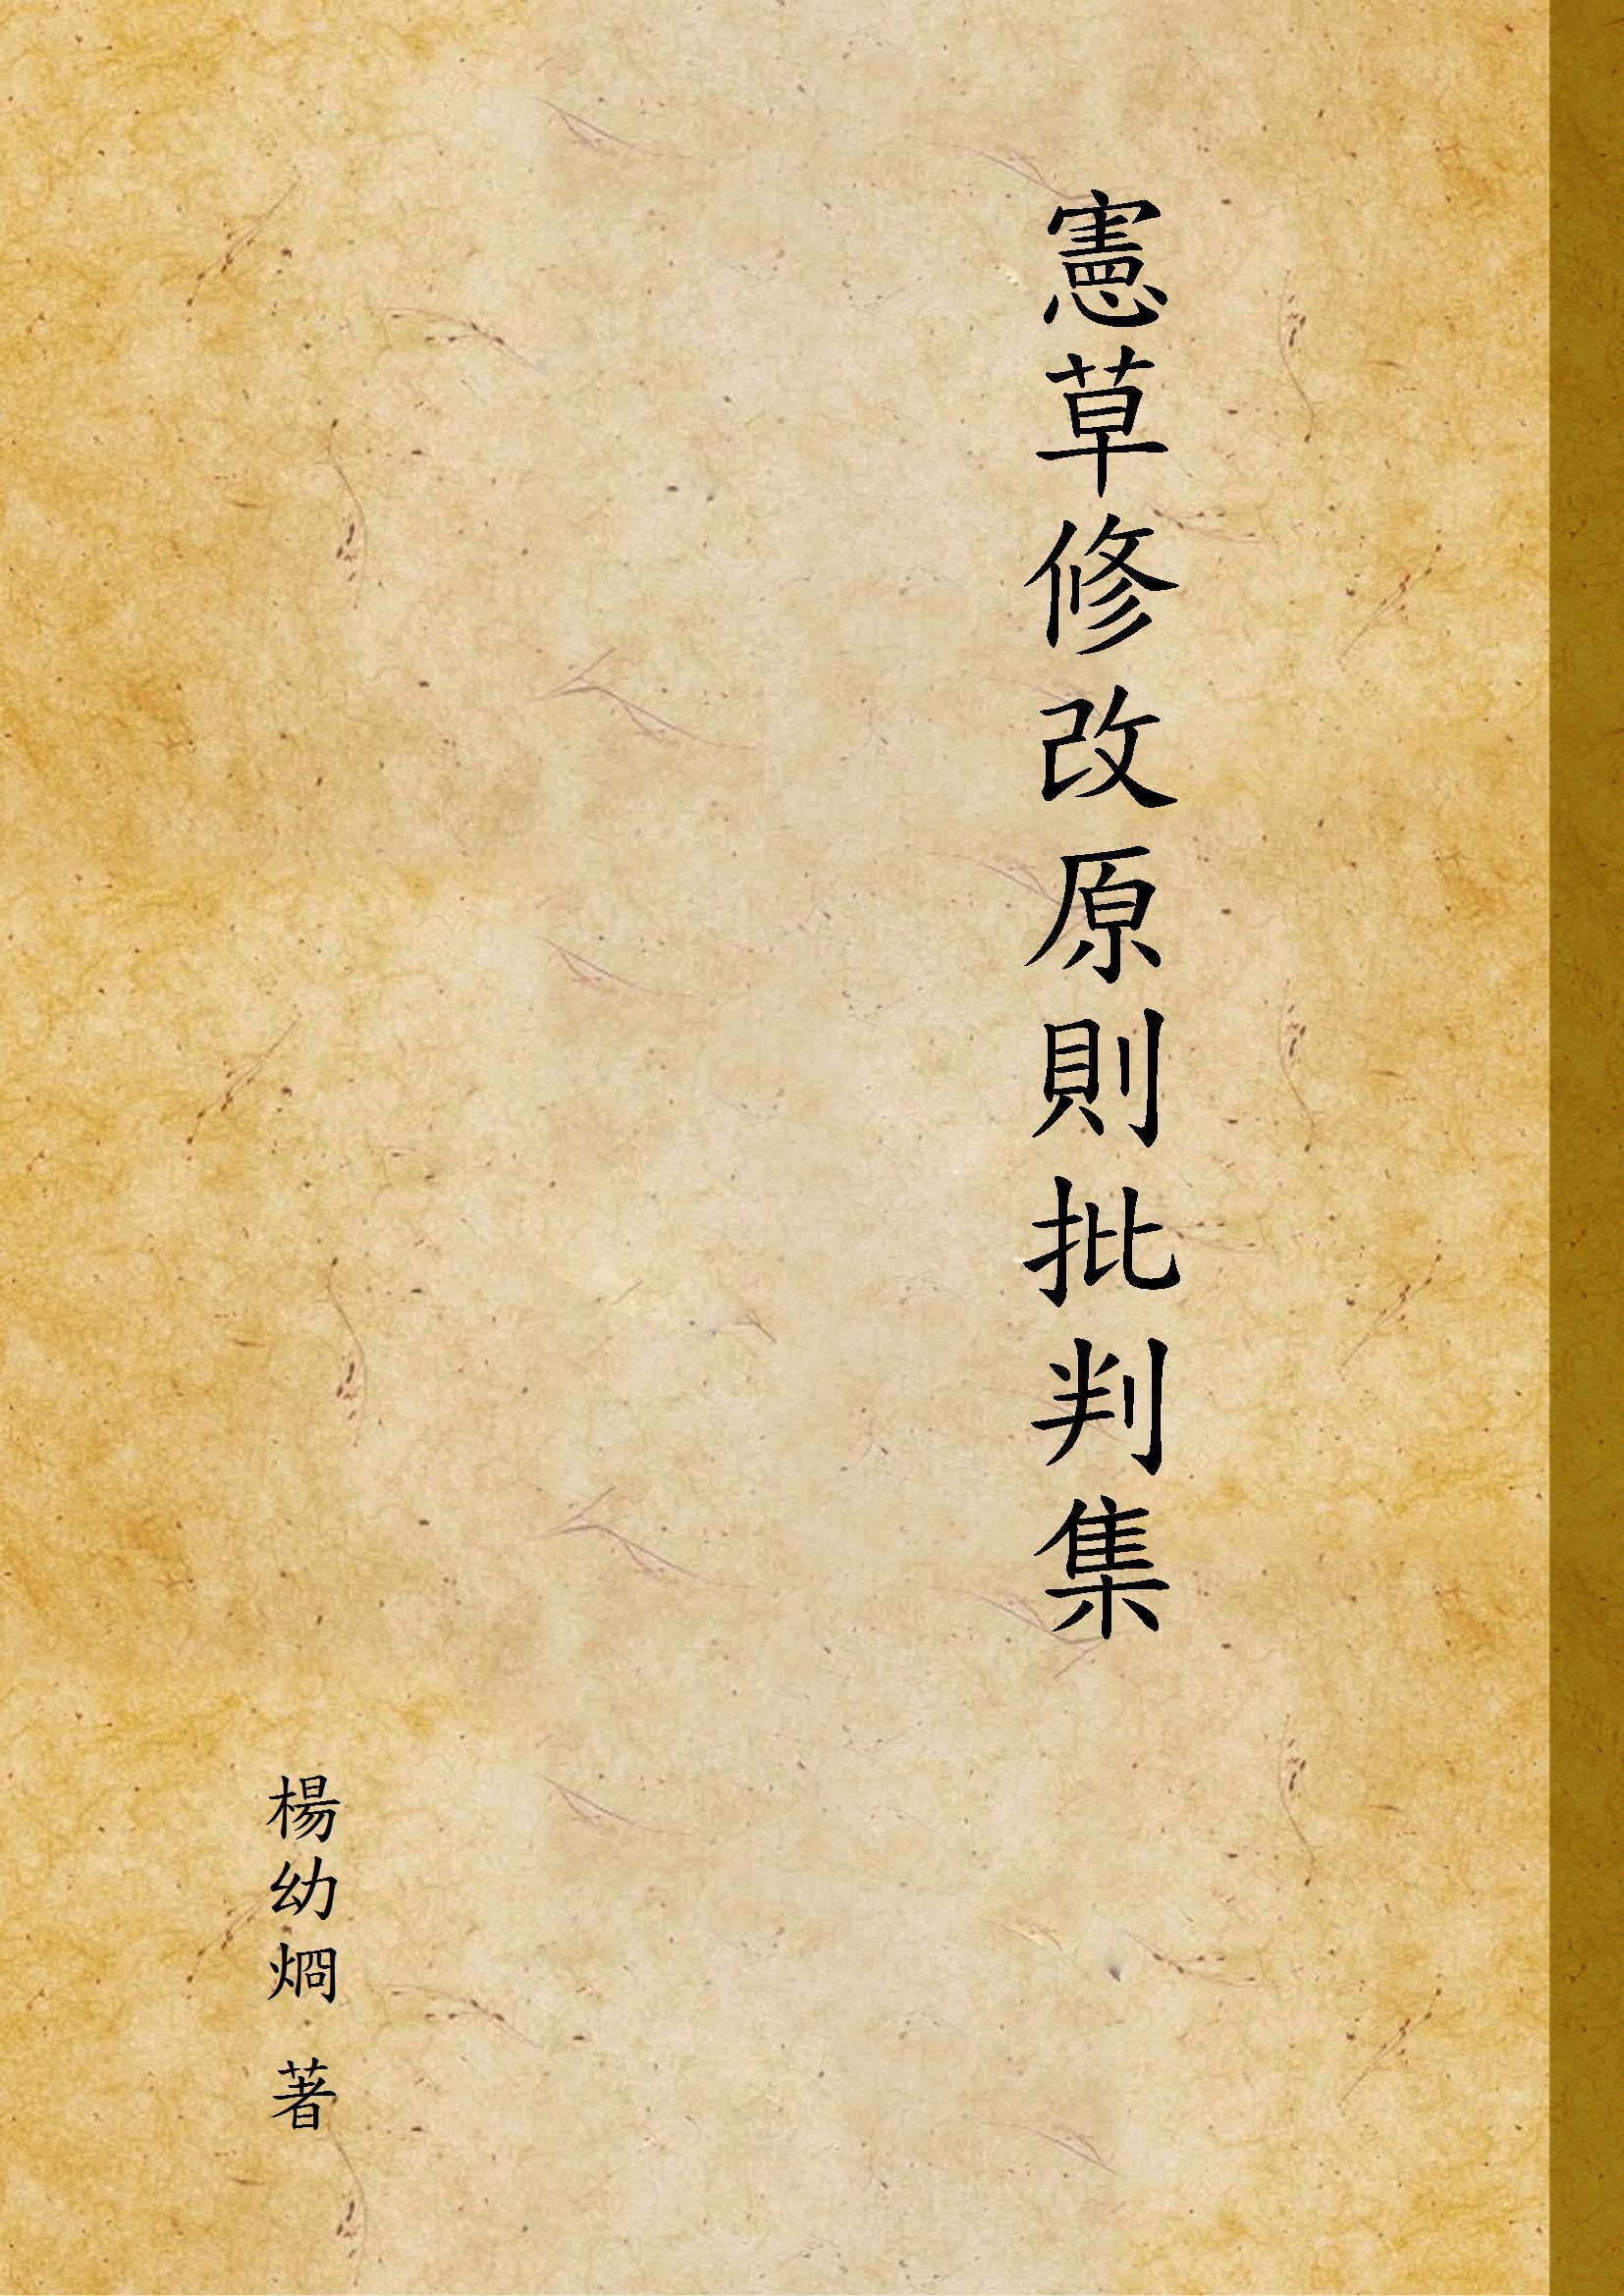 憲草修改原則批判集
楊幼烱 著